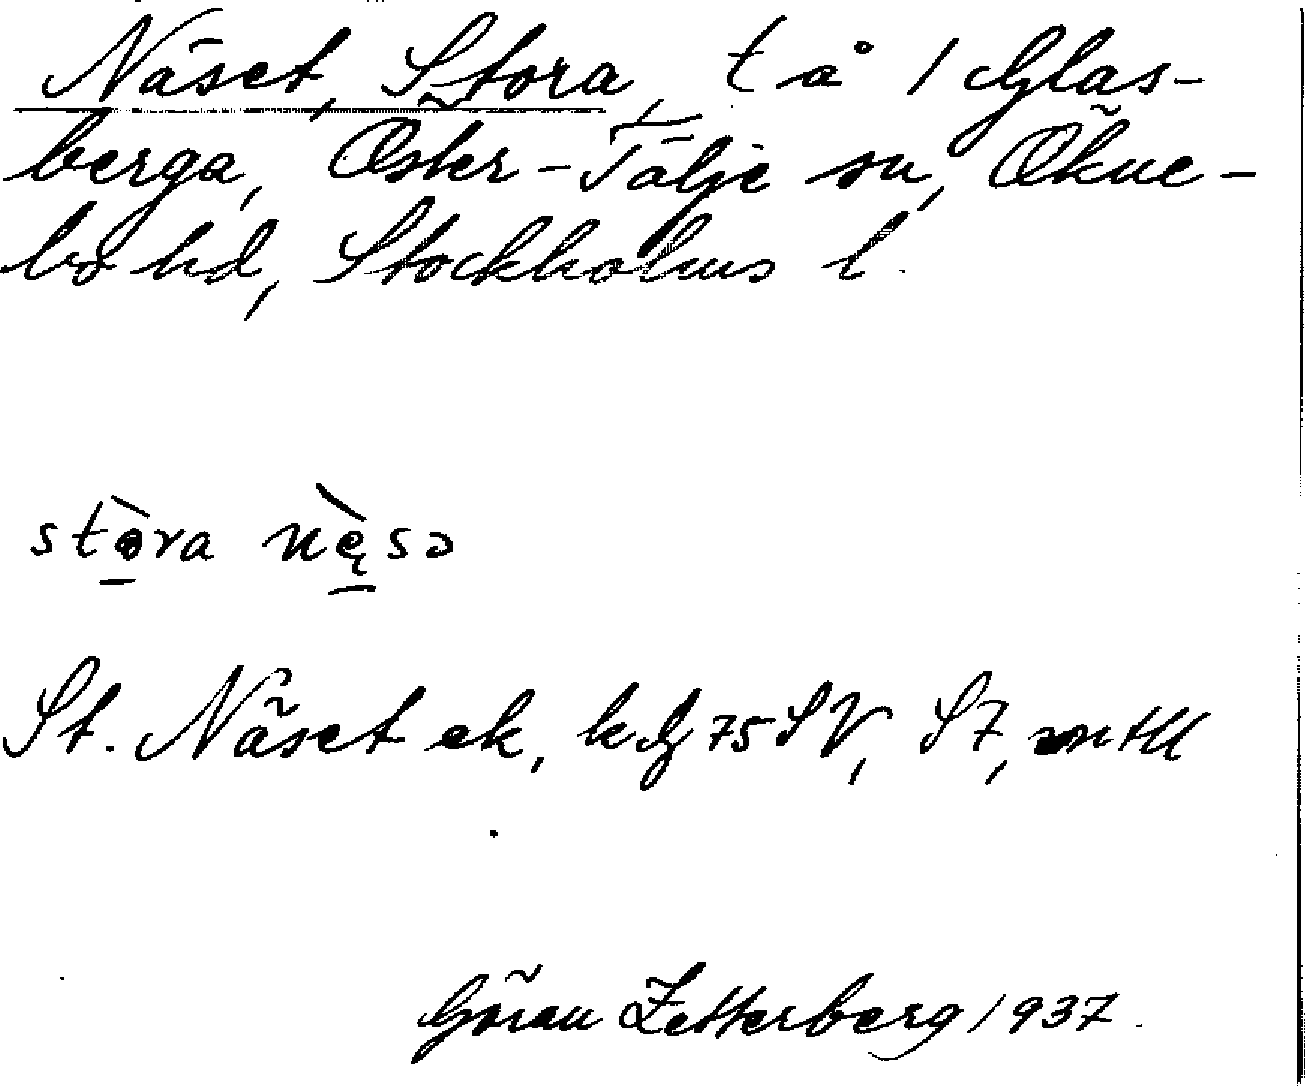 Näset, Stora, t å 1 Glas-
berga, Öster-Tälje sn, Öknе-
bo hd, Stockholms l.
stò̱ra nę̱̀sə
St. Näset ek, kbl 75 SV, S7,
Göran Zetterberg 1937.